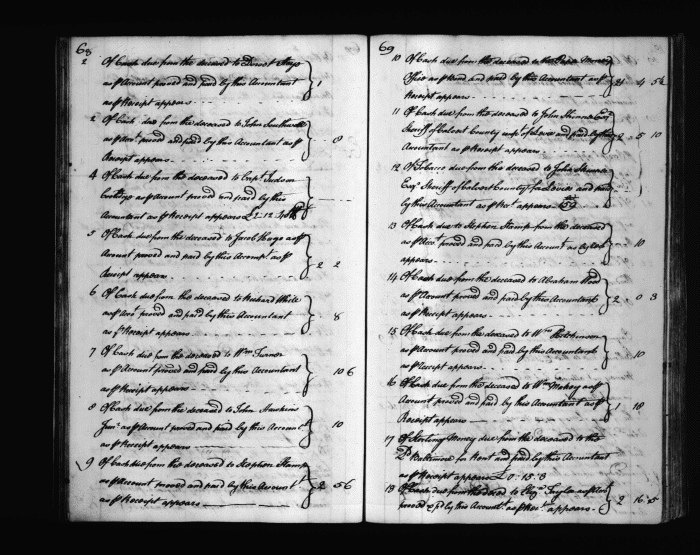 68
2 Of Cash due from the deceased to Ernest Hays
as pr Account proved and paid by this Accountant } 1
as pr Receipt appears
2 Of Cash due from the deceased to John Southwell
as pr Acct proved and paid by this Accountant as pr } 8
Receipt appears
4 Of Cash due from the deceased to Capt. Judson
as pr Account proved and paid by this
Accountant as pr Receipt appears £2.12.
5 Of Cash due from the deceased to Jacob Hugo as pr
Account proved and paid by this Accompt. as pr } 2 2
Receipt appears
6 Of Cash due from the deceased to Richard White
as pr Acct proved and paid by this Accountant } 8
as pr Receipt appears
7 Of Cash due from the deceased to Wm Turner
as pr Account proved and paid by this Accountant } 10 6
as pr Receipt appears
8 Of Cash due from the deceased to John Hawkins
Junr as pr Account proved and paid by this Account } 10
as pr Receipt appears
9 Of Cash due from the deceased to Stephen Stamp
as pr Account proved and paid by this Account } 2 5 6
as pr Receipt appears
69
10 Of Cash due from the deceased to the Paper Money
Office as pr Bond and paid by this Accountant as pr } 21 4 5½
Receipt appears
11 Of Cash due from the deceased to John Skinner Esqr
Sheriff of Calvert County as pr and paid by this } 2 5 10
Accountant as pr Receipt appears
12 Of Tobacco due from the deceased to John Skinner
Esqr Sheriff of Calvert County for Levies and paid
by this Accountant as pr Rect. appears
13 Of Cash due to Stephen Stamp from the deceased
as pr Acct. proved and paid by this Account. as pr Rect } 10
appears
14 Of Cash due from the deceased to Abraham Wood
as pr Account proved and paid by this Accountant } 2 0 3
as pr Receipt appears
15 Of Cash due from the deceased to Wm Hutchinson
as pr Account proved and paid by this Accountant } 10
as pr Receipt appears
16 Of Cash due from the deceased to Wm Mackey as pr
Account proved and paid by this Accountant as pr } 10
Receipt appears
17 Of Sterling Money due from the deceased to the
Ld Baltimore for Rent and paid by this Accountant
as pr Receipt appears £0.15.3
18 Of Cash due from the deced to Taylor as pr Acct
proved & pd by this Accountt. as pr Rect. appears } 2 16 5